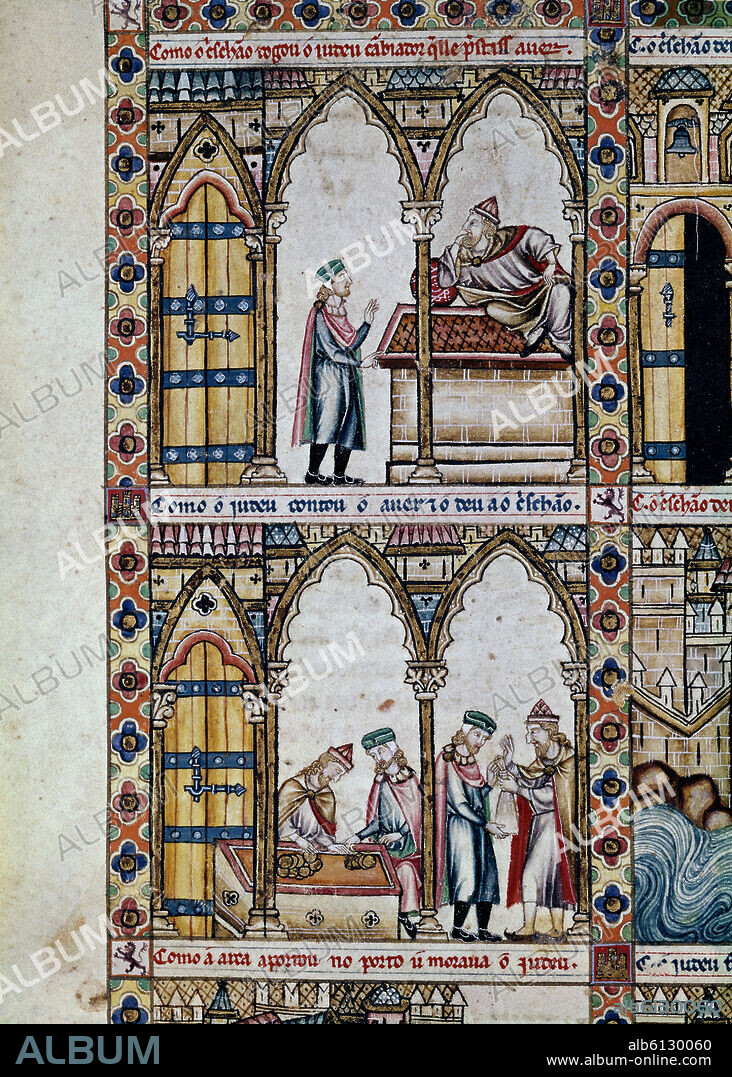 Como o c̄schão rogou o iudeu cãbiador q̃lle p̃stass auer.
C. o c̄schão deu
Como o iudeu contou o auer ⁊ o deu ao c̄schão.
C. o c̄schão deu
Como a arca aportou no porto u moraua o iudeu.
iudeu
ALBUM
ab6130060
www.album-online.com